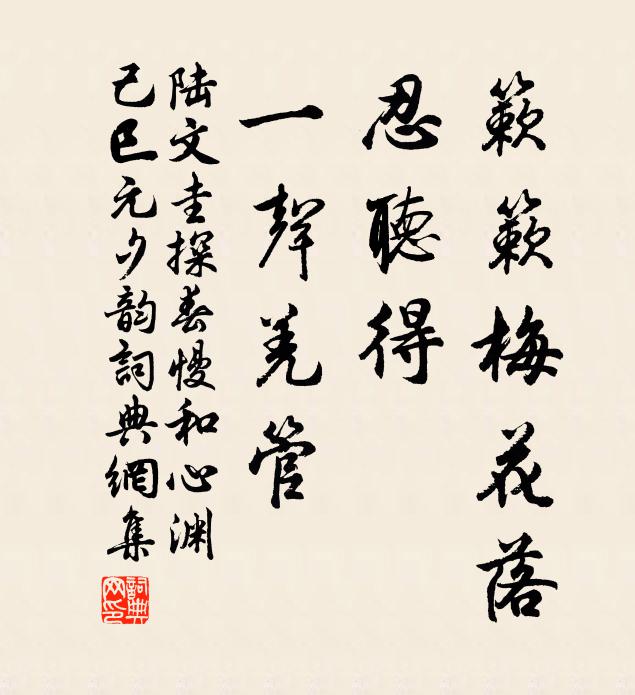 簌簌梅花落
忍聽得
一聲羌管
陸文圭探春慢和心渊
己巳元夕韵詞典網集
詞典網印